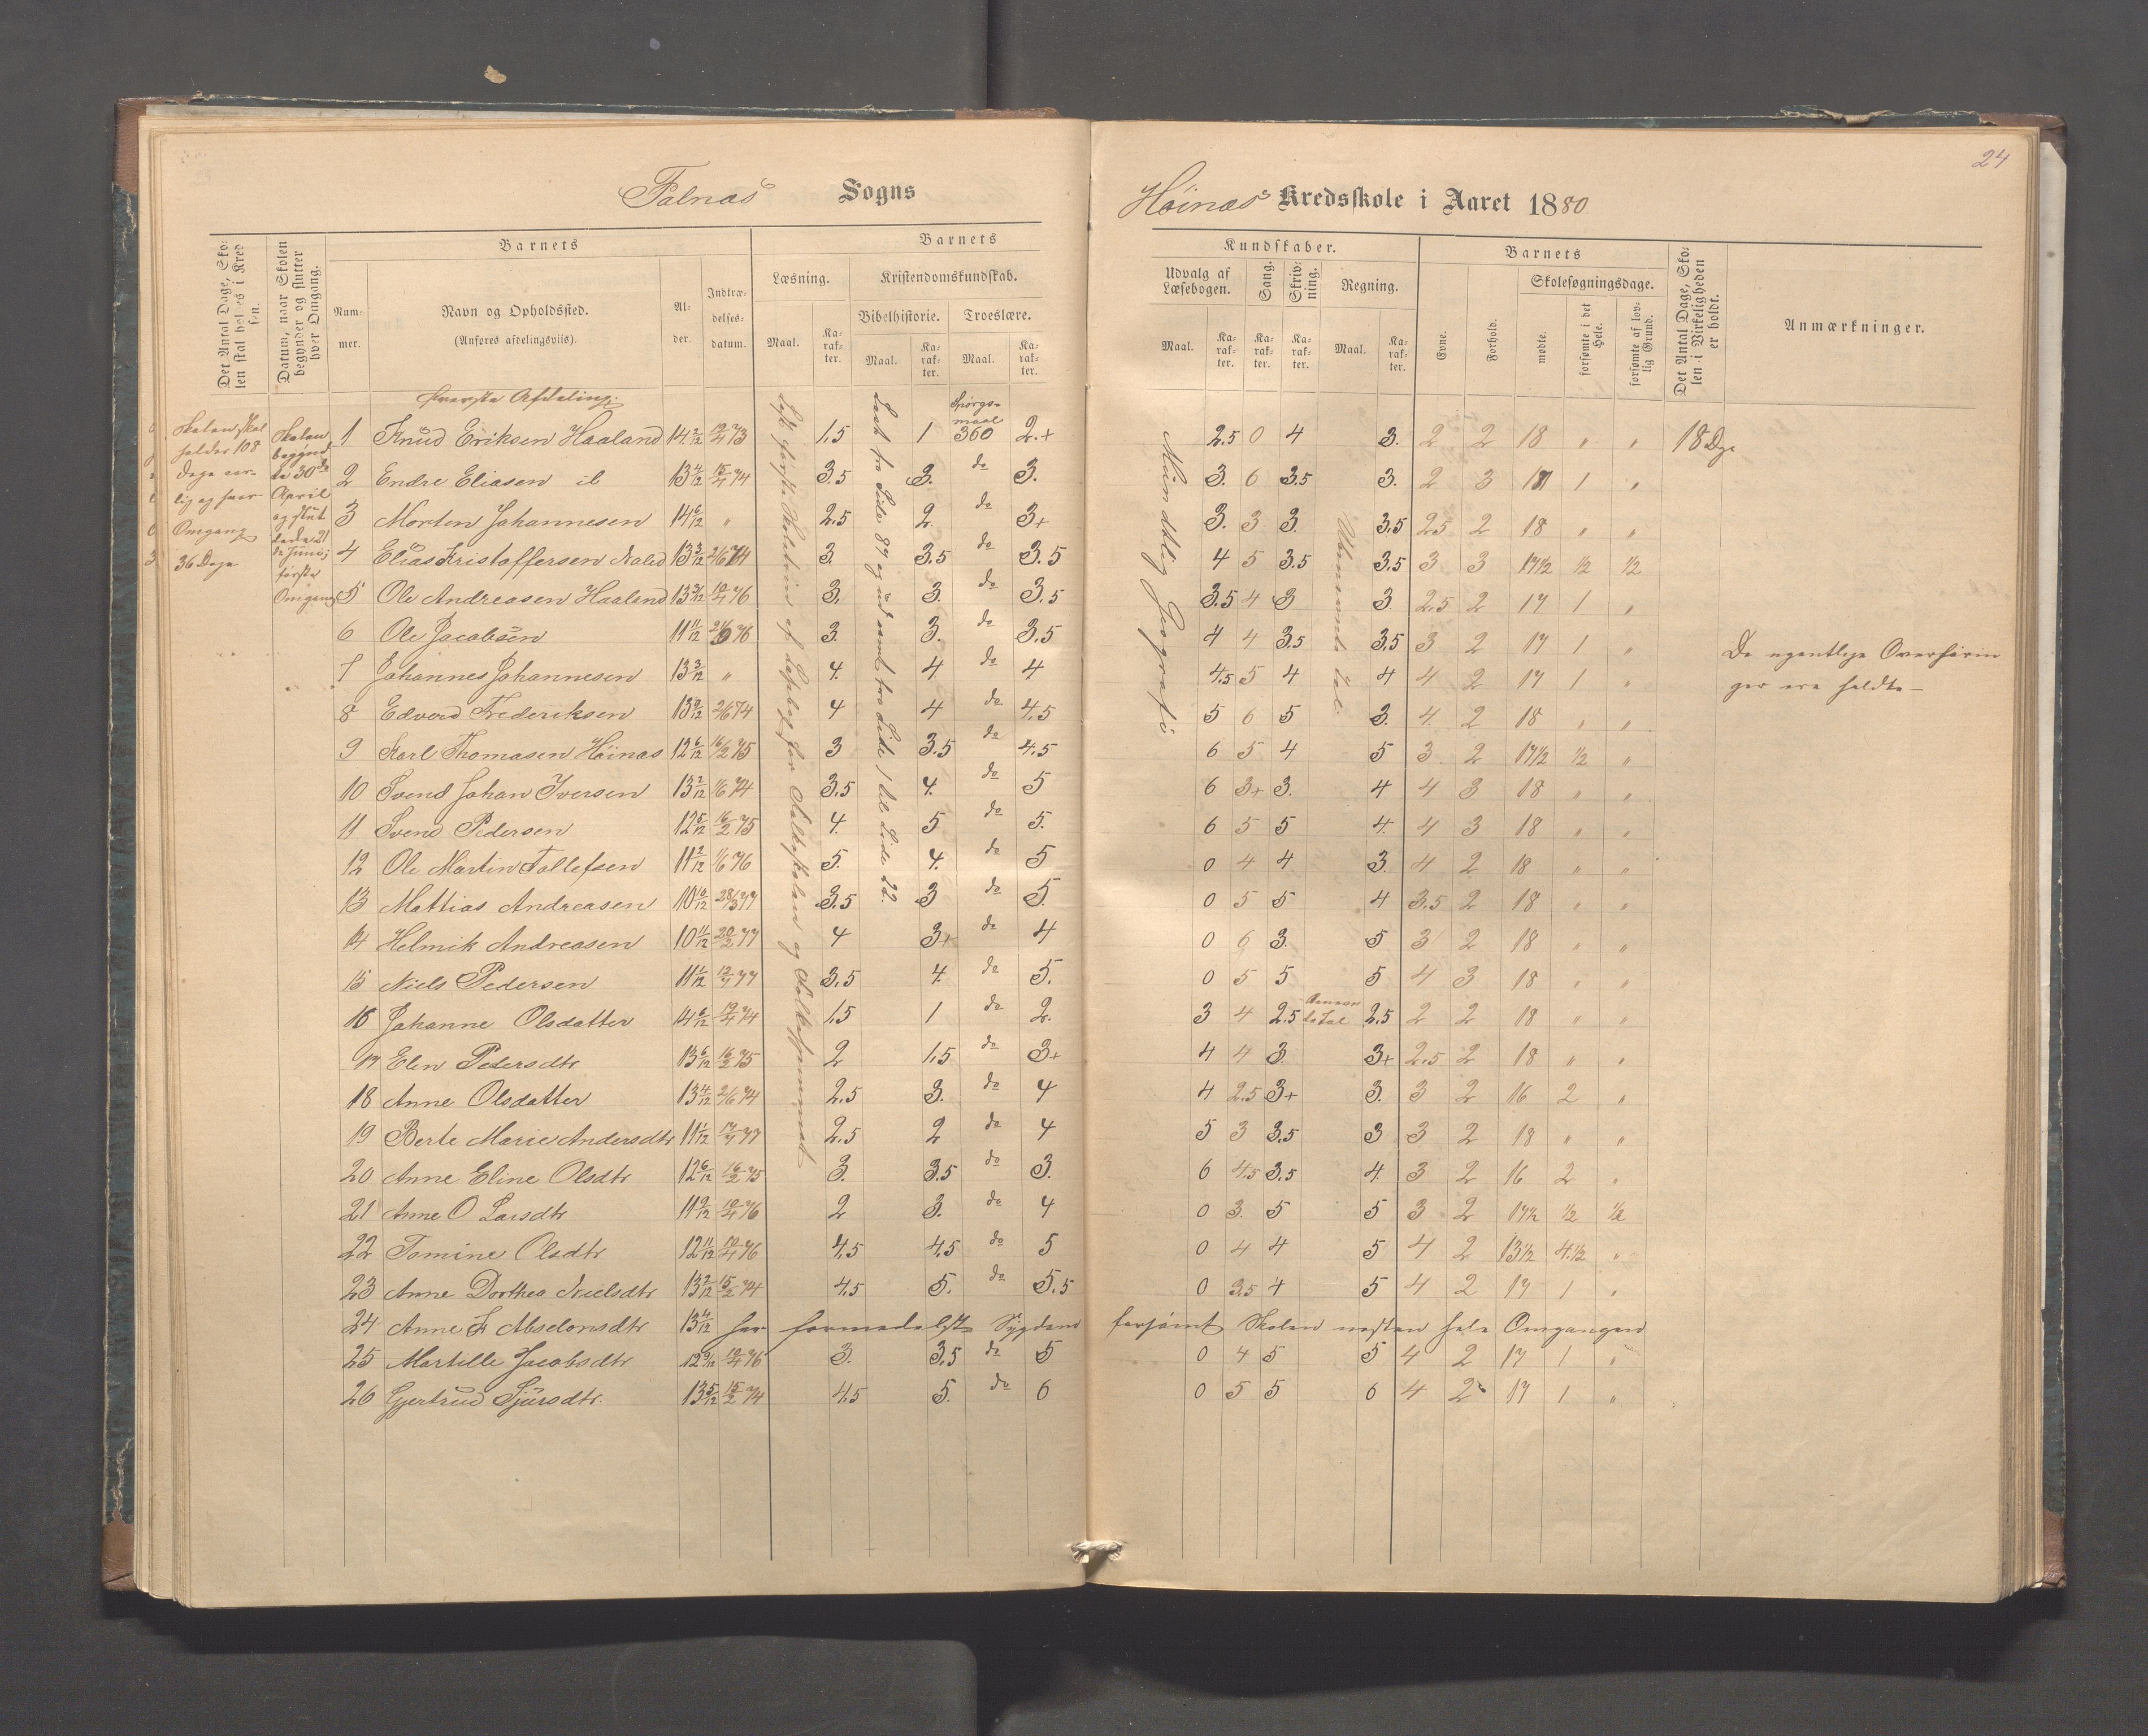 24
Falnæs Sogns
Høinæs Kredsskole i Aaret 1880
Det Antal Dage, Skolen skal holdes i Kredsen.
Datum, naar Skolen begynder og slutter hver Omgang.
Barnets
Nummer.
Navn og Opholdssted.
(Anføres afdelingsviis).
Alder.
Indtrædelsesdatum.
Barnets
Læsning.
Maal.
Karakter.
Kristendomskundskab.
Bibelhistorie.
Maal.
Karakter.
Troeslære.
Maal.
Karakter.
Kundskaber.
Udvalg af Læsebogen.
Maal.
Karakter.
Sang.
Karakter.
Skrivning.
Karakter.
Regning.
Maal.
Karakter.
Barnets
Evne.
Forhold.
Skolesøgningsdage.
mødte.
forsømte i det Hele.
forsømte af lovlig Grund.
Det Antal Dage, Skolen i Virkeligheden er holdt.
Anmærkninger.
Øverste Afdeling:
Skolen skal holdes 108 Dage aarlig og hver Omgang 36 Dage
Skolen begyndte 30de April og sluttede 21de Juni; første Omgang
Mundtlig Geografi
Ubenævnte Tal.
1 Knud Eriksen Haaland 14 2/12 19/4 73 1,5 1 Spørgsmaal 360 2.+ 2.5 0 4 3. 2 2 18 " " 18 Dge
2 Endre Eliasen ib 13 4/12 15/4 74 3.5 3. do 3. 3. 6 3.5 3. 2 3 17 1 "
3 Morten Johannesen 14 6/12 " 2.5 2 do 3+ 3. 3 3. 3.5 2.5 2 18 " "
4 Elias Kristoffersen 13 3/12 2/6 74 3. 3.5 do 3.5 4 5 3.5 3.5 3 3 17 1/2 1/2 1/2
5 Ole Andreasen Haaland 3. 3. do 3.5 3.5 4 3 3 2.5 2 17 1 "
6 Ole Jacobsen 11 11/12 3. 3. do 3.5 4 4 3.5 3.5 3 2 17 1 "
7 Johannes Johannesen 13 3/12 " 4. 4 do 4 4.5 5 4 4 4 2 17 1 "
8 Edverd Frederiksen 13 9/12 2/6 74 4 4 do 4.5 5 6 5 3. 4. 2 18 " "
9 Karl Thomasen Höinæs 12 6/12 16/2 75 3 3.5 do 4.5 6 5 4 5 3 2 17 1/2 1/2 "
10 Svend Johan Iversen 13 2/12 1/6 74 3.5 4. do 5 6 3+ 3. 4 4 3 18 " "
11 Svend Pedersen 12 5/12 16/2 75 4. 5 do 5. 6 5 5 4. 4 3 18 " "
12 Ole Martin Tollefsen 11 2/12 1/6 76 5. 4. do 5 0 4 4 3. 4 2 18 " "
13 Mattias Andreasen 10 10/12 28/3 77 3.5 3 do 5. 0 5 5 4 3.5 2 18 " "
14 Helmik Andreasen 10 11/12 20/2 77 4 3+ do 4 0 6 3. 5 3 2 18 " "
15 Niels Pedersen 11 1/12 3.5 4. do 5. 0 5 5 5 4 3 18 " "
16 Johanne Olsdatter 14 6/12 19/4 74 1,5 1 do 2. 3 4 2.5 2.5 2 2 18 " "
17 Elen Pedersdtr 13 6/12 16/2 75 2 1,5 do 3+ 4 4 3. 3+ 2.5 2 18 " "
18 Anne Olsdatter 13 4/12 2/6 74 2.5 3. do 4 4 2.5 3+ 3. 3 2 16 2 "
19 Berte Marie Andersdtr 11 1/12 2.5 2 do 4 5 3 3.5 3 3 2 18 " "
20 Anne Eline Olsdtr 12 6/12 16/2 75 3. 3.5 do 3. 6 4.5 3.5 4. 3 2 16 2 "
21 Anne O Larsdtr 11 9/12 19/4 76 2 3. do 4 0 3. 5 5 3 2 17 1/2 1/2 1/2
22 Tomine Olsdtr 12 11/12 19/4 76 4.5 4.5 do 5 0 4 4 5 4 2 13 1/2 4.1/2 "
23 Anne Dorthea Nielsdtr 13 2/12 15/2 74 4.5 5. do 5.5 0 3.5 4 5 4 2 17 1 "
24 Anne K Absalonsdtr 13 4/12 har formedelst Sygdom forsömt Skolen næsten hele Omgangen
25 Martille Jacobsdtr 12 9/12 19/4 76 3. 3.5 do 5 0 4 5 5 4 2 17 1 "
26 Gjertrud Sjursdtr. 13 5/12 15/2 74 4.5 5. do 6 0 5 5 6 4 2 17 1 "
De egentlige Overhöringer ere holdte –